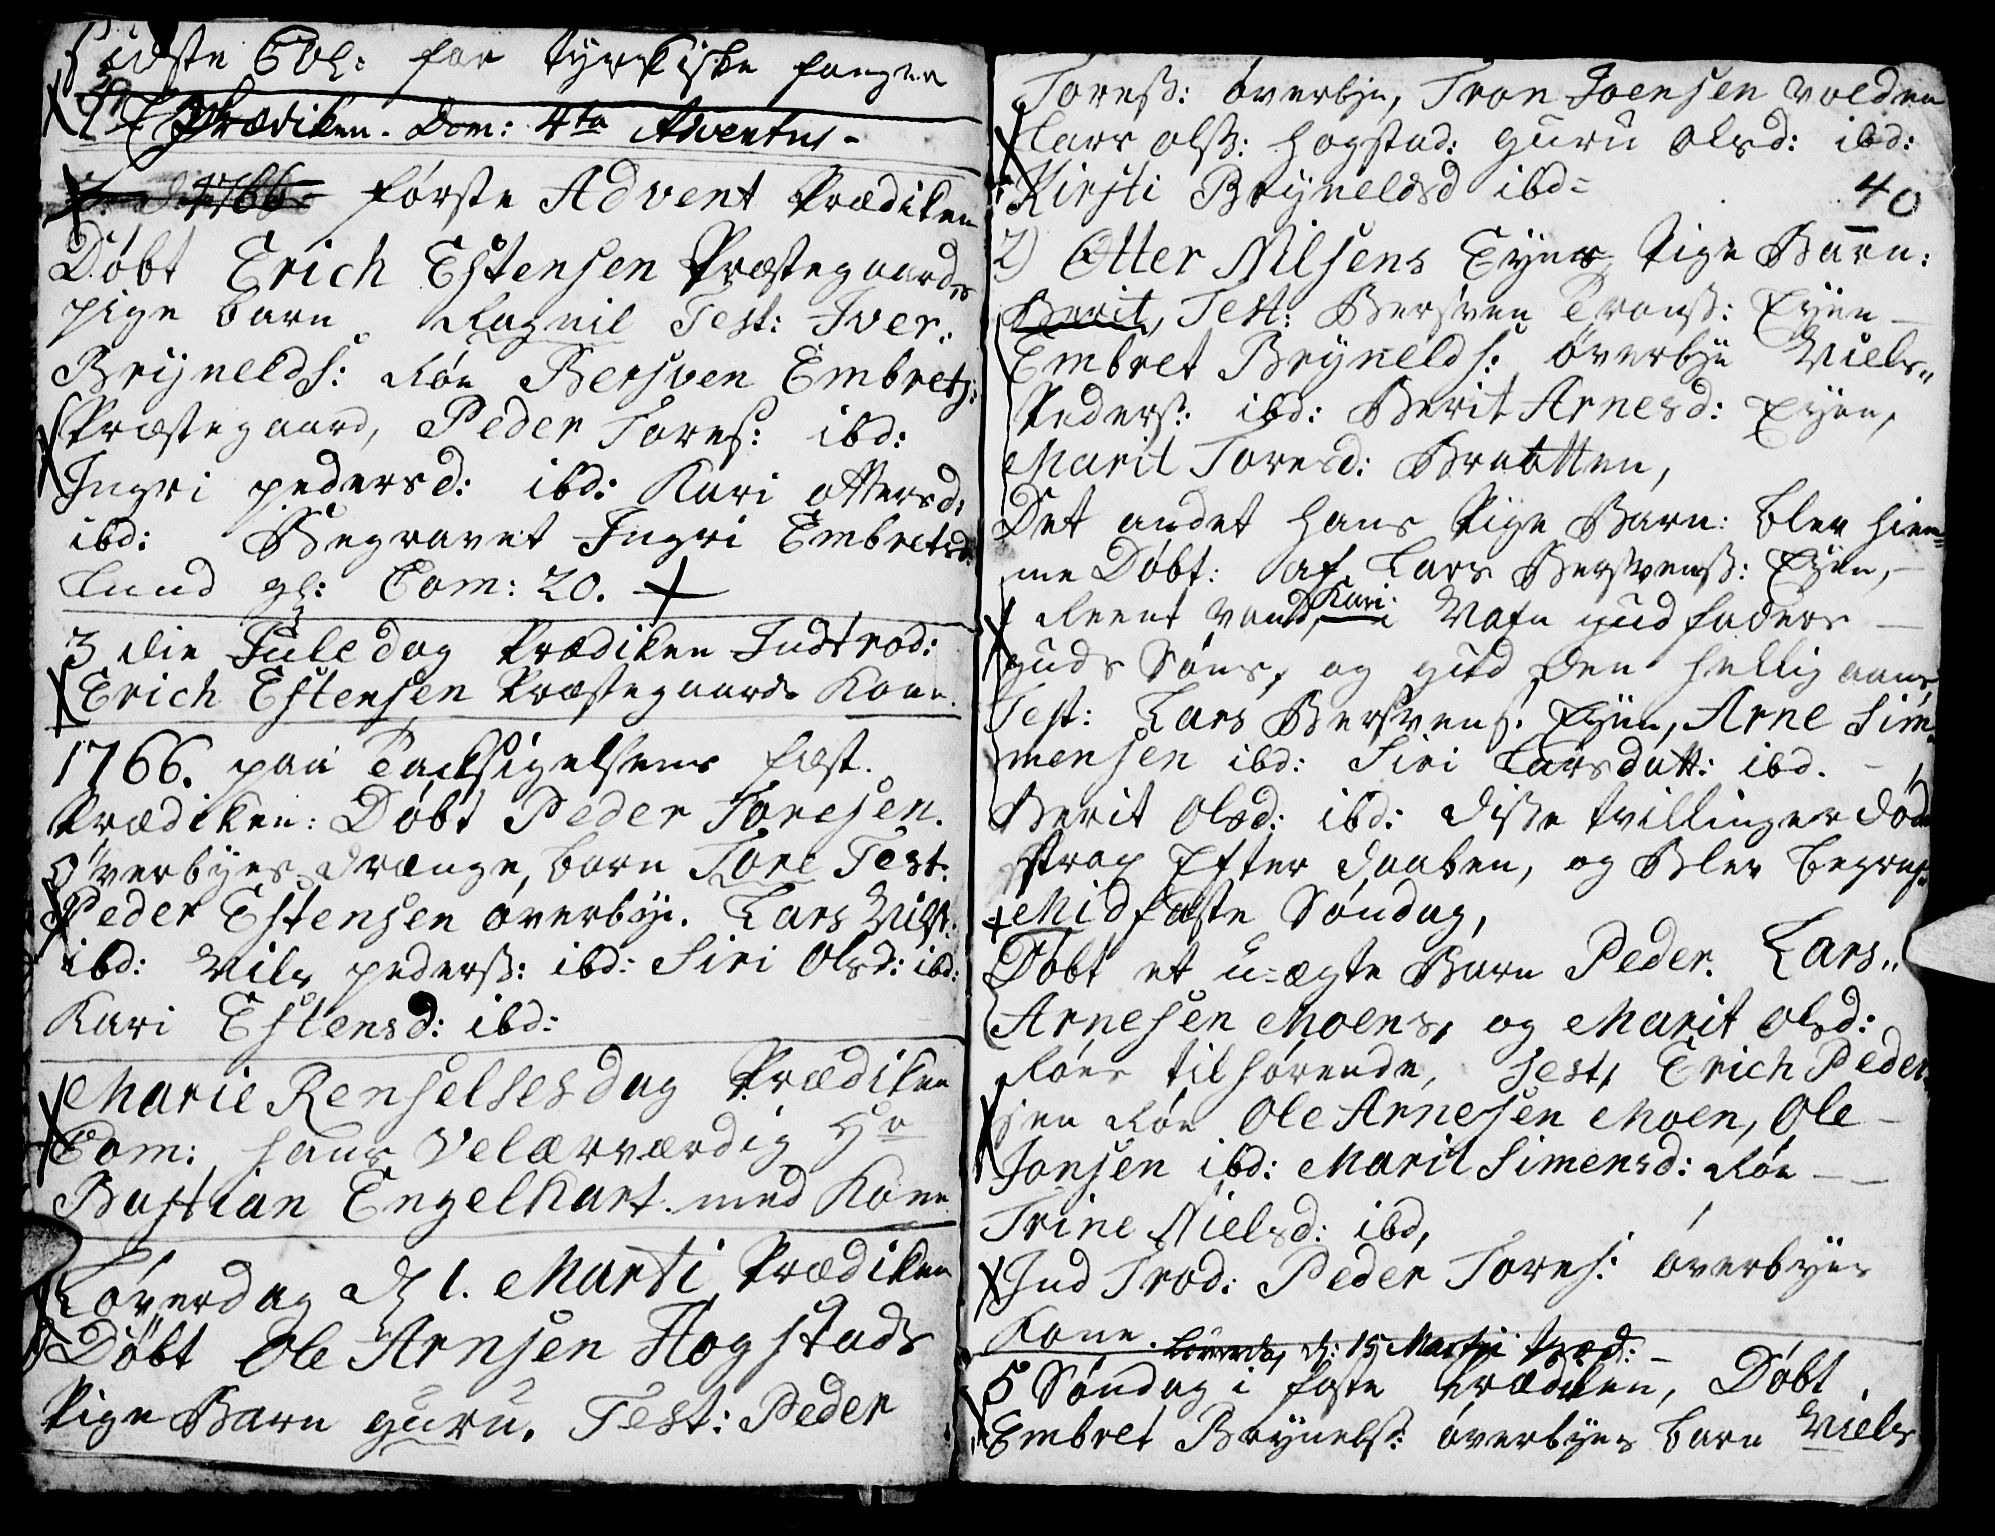 sidste Coll: for tyrkiske fanger
Prædiken. Dom: 4ta Adventus -
1766 første Advent Prædiken
Døbt Erich Estensen Præstegaards
pige barn Ragnil Test: Iver
Brynelds: Røe Bersven Embrets:
Præstegaard, Peder Tores: ibd:
Ingri pedersd: ibd: Kari ottersd:
ibd: Begravet Ingri Embretsd:
Lund gl: Com: 20.
3 die Juledag Prædiken Indtrod:
Erich Estensen Præstegaards Kone.
1766. paa Tacksigelsens fæst.
Prædiken: Døbt Peder Toresen.
Øverbyes drænge barn Tore Test:
Peder Estensen øverbye. Lars Nilss:
ibd: Nils pederss: ibd: Siri Olsd: ibd:
Kari Estensd: ibd:
Marie Renselsesdag Prædiken
Com: hans Velærværdig Hr
Bastian Engelhart med Kone
Løverdag d 1. Marti Prædiken
Døbt Ole Arnsen Hogstads
Pige Barn guru. Test: Peder
Toress: øverbye, Tron Joensen volden
Lars olss: Hogstad: guru olsd: ibd:
Kirsti Bryneldsd ibd=
40
2) Otter Nilsens Eyens Pige Barn:
Berit, Test: Bersven Tronss: Eyen -
Embret Brynelds: øverbye Niels
Pederss: ibd: Berit Arnesd: Eyen,
Marit Toresd: Braatten,
Det andet hans Pige Barn: blev hiem=
me Døbt: af Lars Bersvenss: Eyen, -
i Reent vand, Kari i Nafn gud faders -
guds Søns, og gud den hellig aans,
Test: Lars Bersvens: Eyen, Arne Sim
mensen ibd: Siri Larsdatt: ibd. -
Berit Olsd: ibd: disse tvillinger døde
strax Efter daaben, og Blev begrav:
Midfaste Søndag,
Døbt et u=ægte Barn Peder. Lars
Arnesen Moens, og Marit Olsd:
Røes tilhørende, Test, Erich Peder
sen Røe Ole Arnesen Moen, Ole -
Jonsen ibd: Marit Simensd: Røe - -
Trine Nielsd: ibd,
Ind Trod: Peder Tores: øverbyes
Kone. Løverda, d: 15 Martii Præd: -
5 Søndag i faste Prædiken, Døbt
Embret Brynelss: øverbyes barn Niels